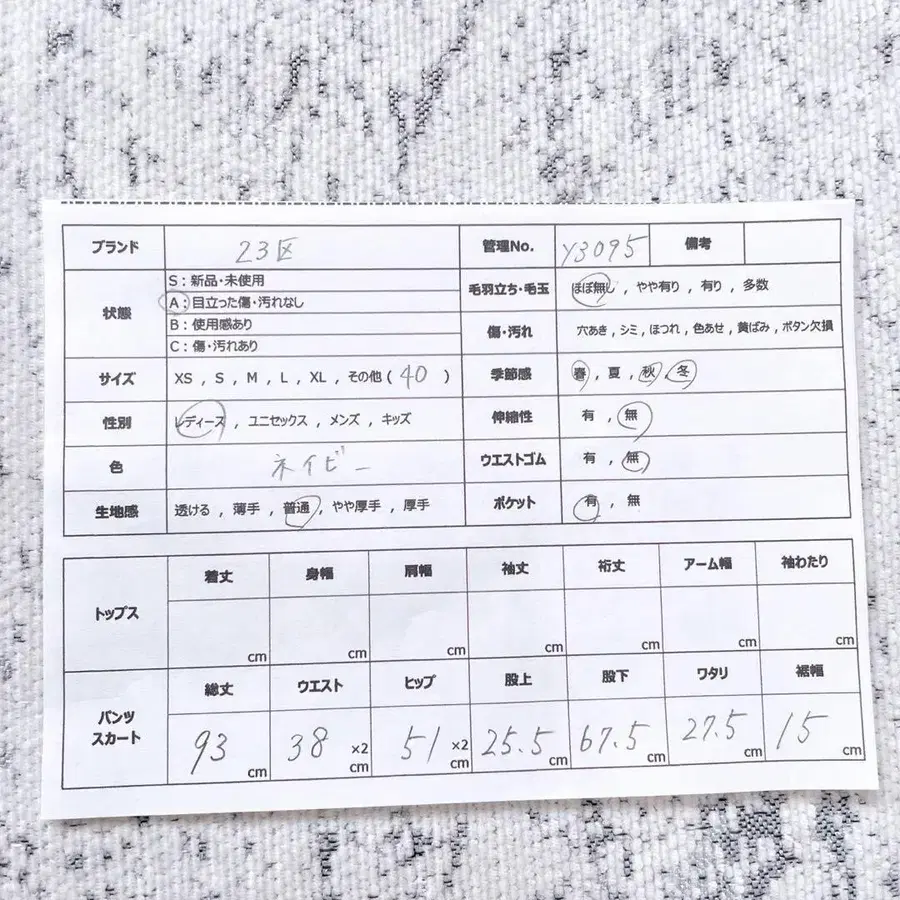 ブランド 23区 管理No. Y3095 備考
状態 S：新品・未使用
A：目立った傷・汚れなし
B：使用感あり
C：傷・汚れあり
毛羽立ち・毛玉 ほぼ無し , やや有り , 有り , 多数
傷・汚れ 穴あき , シミ , ほつれ , 色あせ , 黄ばみ , ボタン欠損
サイズ XS , S , M , L , XL , その他 ( 40 ) 季節感 春 , 夏 , 秋 , 冬
性別 レディース , ユニセックス , メンズ , キッズ 伸縮性 有 , 無
色 ネイビー ウエストゴム 有 , 無
生地感 透ける , 薄手 , 普通 , やや厚手 , 厚手 ポケット 有 , 無
トップス 着丈 身幅 肩幅 袖丈 裄丈 アーム幅 袖わたり
cm cm cm cm cm cm cm
パンツ スカート 総丈 ウエスト ヒップ 股上 股下 ワタリ 裾幅
93 cm 38 ×2 cm 51 ×2 cm 25.5 cm 67.5 cm 27.5 cm 15 cm